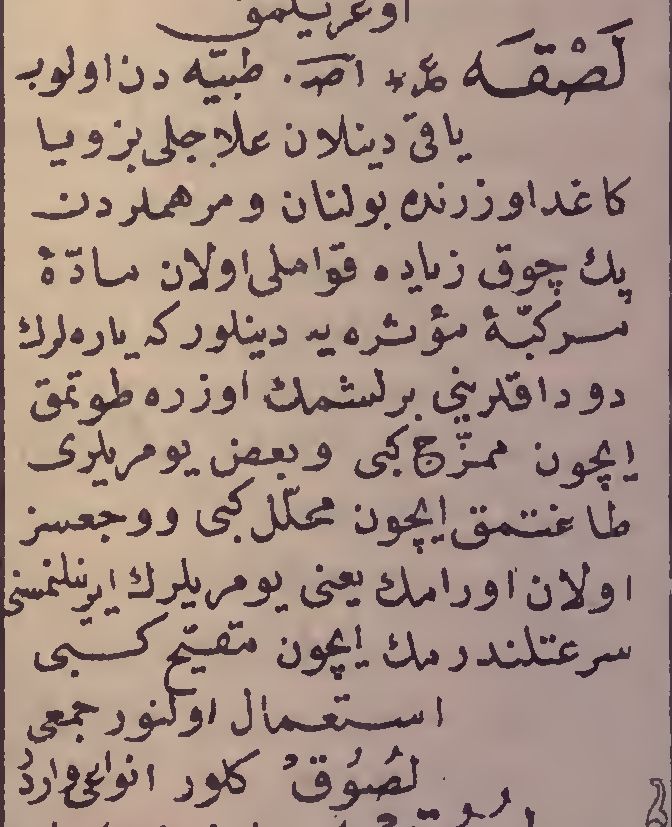 اوغريلمق
لَصْقَه اصـ. طبيّه دن اولوب
ياقى دينلان علاجلى بز ويا
كاغد اوزرنده بولنان ومرهملردن
پك چوق زياده قوامىلى اولان مادّهٔ
مركبّهٔ مؤثره يه دينلور كه ياره لرك
دوداقلرينى برلشمك اوزره طوتمق
ايچون ممزّج كبى وبعض يومريلرى
طاغتمق ايچون محلّل كبى ووجعسز
اولان اورامك يعنى يومريلرك ايرينلنمسنى
سرعتلندرمك ايچون متقيّح كبى
استعمال اولنور جمعى
لصُوُقٌ كلور انواعى واردر